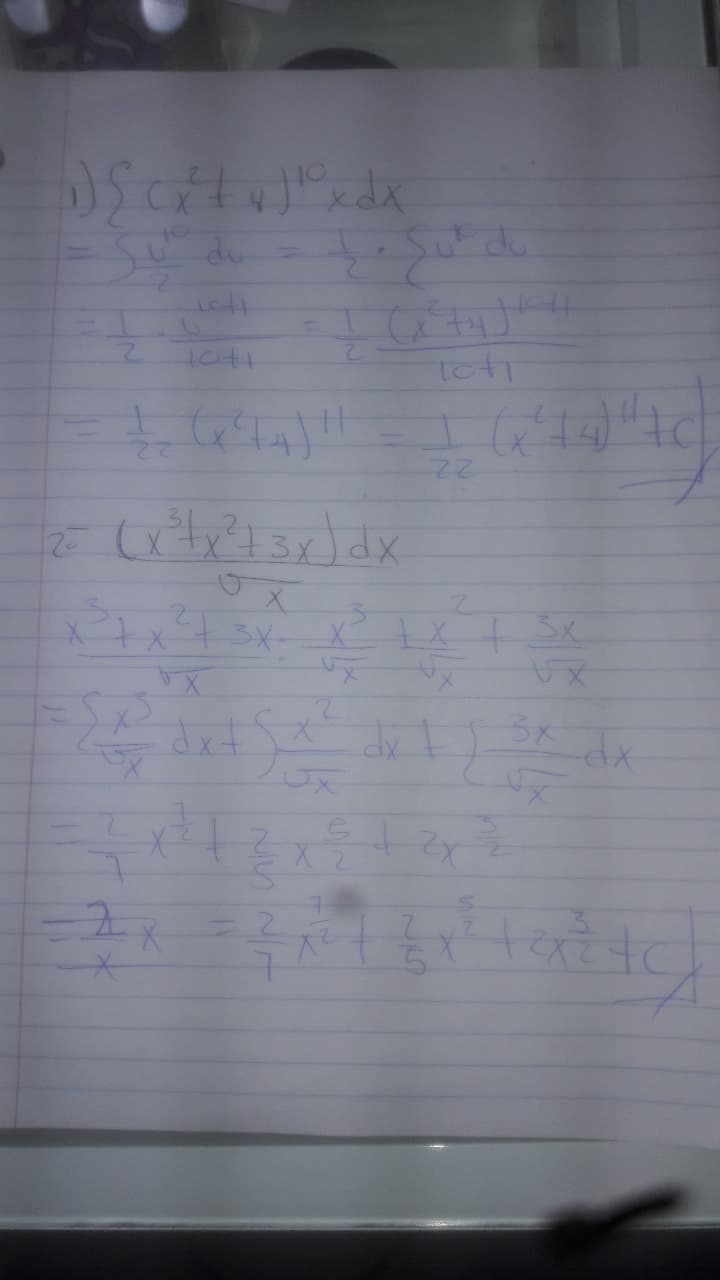 1) ∫ (x²+4)¹⁰ x dx
= ∫ u¹⁰/2 du = 1/2 · ∫ u¹⁰ du
= 1/2 · u¹⁰⁺¹/10+1 = 1/2 (x²+4)¹⁰⁺¹/10+1
= 1/22 (x²+4)¹¹ = 1/22 (x²+4)¹¹ + C
2- (x³+x²+3x) dx/√x
x³+x²+3x/√x : x³/√x + x²/√x + 3x/√x
= ∫ x³/√x dx + ∫ x²/√x dx + ∫ 3x/√x dx
= 2/7 x^7/2 + 2/5 x^5/2 + 2x^3/2
= 2/7 x^7/2 + 2/5 x^5/2 + 2x^3/2 + C